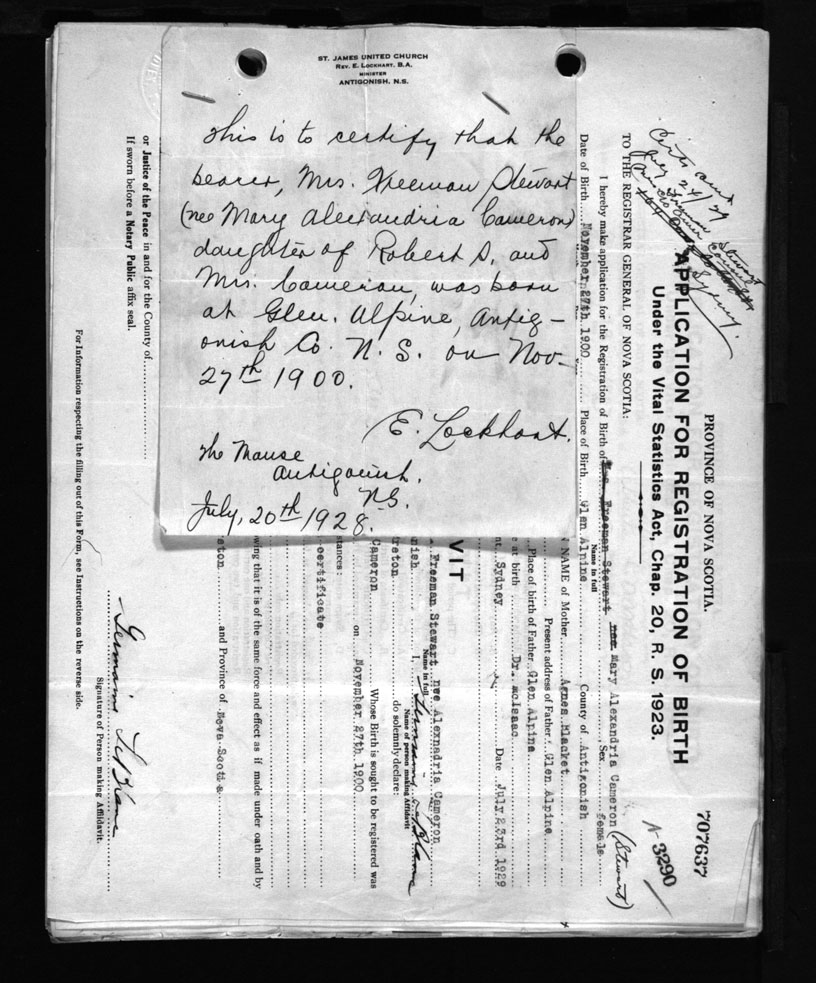 ST. JAMES UNITED CHURCH
REV. E. LOCKHART, B.A.
MINISTER
ANTIGONISH, N.S.
This is to certify that the
bearer, Mrs. Freeman Stewart
(nee Mary Alexandria Cameron)
daughter of Robert D. and
Mrs. Cameron, was born
at Glen. Alpine, Antig-
onish Co. N. S. on Nov-
27th 1900.
E. Lockhart.
The Manse
Antigonish.
N.S.
July, 20th 1928.
PROVINCE OF NOVA SCOTIA.
APPLICATION FOR REGISTRATION OF BIRTH
Under the Vital Statistics Act, Chap. 20, R. S. 1923.
707637
A-3290
(Stewart)
TO THE REGISTRAR GENERAL OF NOVA SCOTIA:
I hereby make application for the Registration of Birth of Mrs. Freeman Stewart nee Mary Alexandria Cameron, Sex female
Name in full
Date of Birth November 27th 1900 Place of Birth Glen Alpine County of Antigonish
NAME of Mother Agnes Blacket
Present address of Father Glen Alpine
Place of birth of Father Glen Alpine
e at birth Dr. McIsaac
nt Sydney Date July 23rd 1929
VIT
Freeman Stewart nee Alexnadria Cameron
Name in full
nish I, Germaine LeBlanc
Name of person making Affidavit
reton do solemnly declare:
Cameron Whose Birth is sought to be registered was
on November 27th 1900
stances:
certificate
wing that it is of the same force and effect as if made under oath and by
eton and Province of Nova Scotia
Germaine LeBlanc
Signature of Person making Affidavit.
or Justice of the Peace in and for the County of
If sworn before a Notary Public affix seal.
For Information respecting the filling out of this Form, see Instructions on the reverse side.